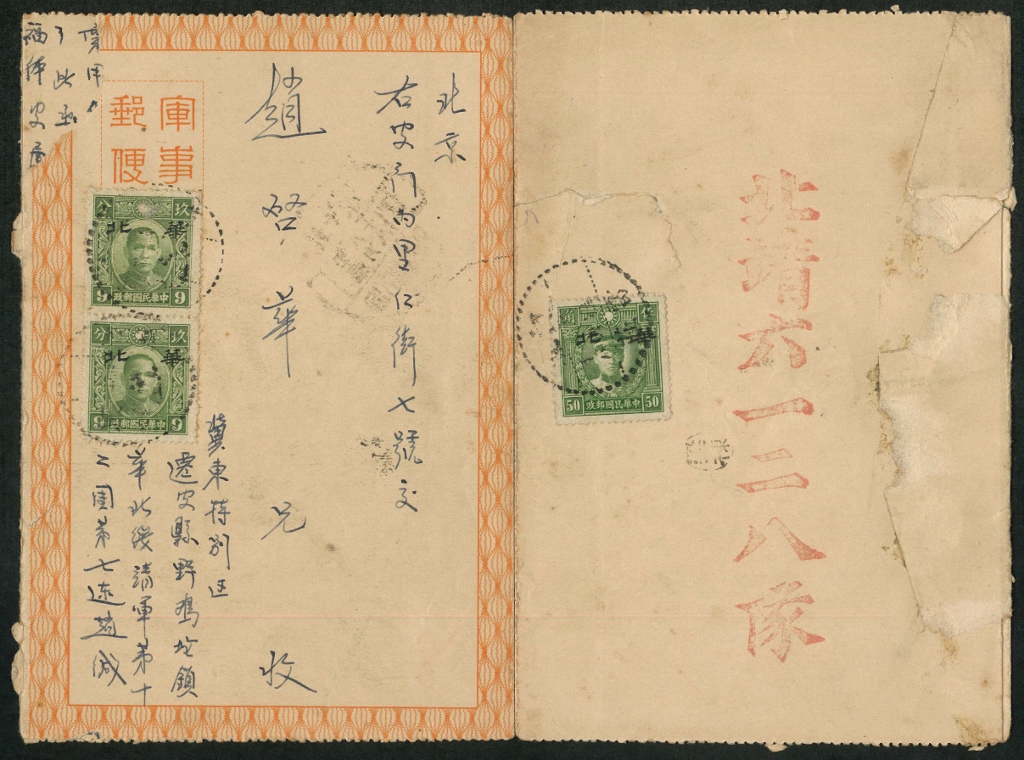 北京
右安門內里仁街七號交
趙啓華兄
收
冀東特別區
遷安縣野鸡坨鎮
華北綏靖軍第十
二團第七連趙
軍事
郵便
玖
分
華北
9
中華民國郵政
9
玖
分
華北
9
中華民國郵政
9
北靖六一二八隊
華北
50
中華民國郵政
50